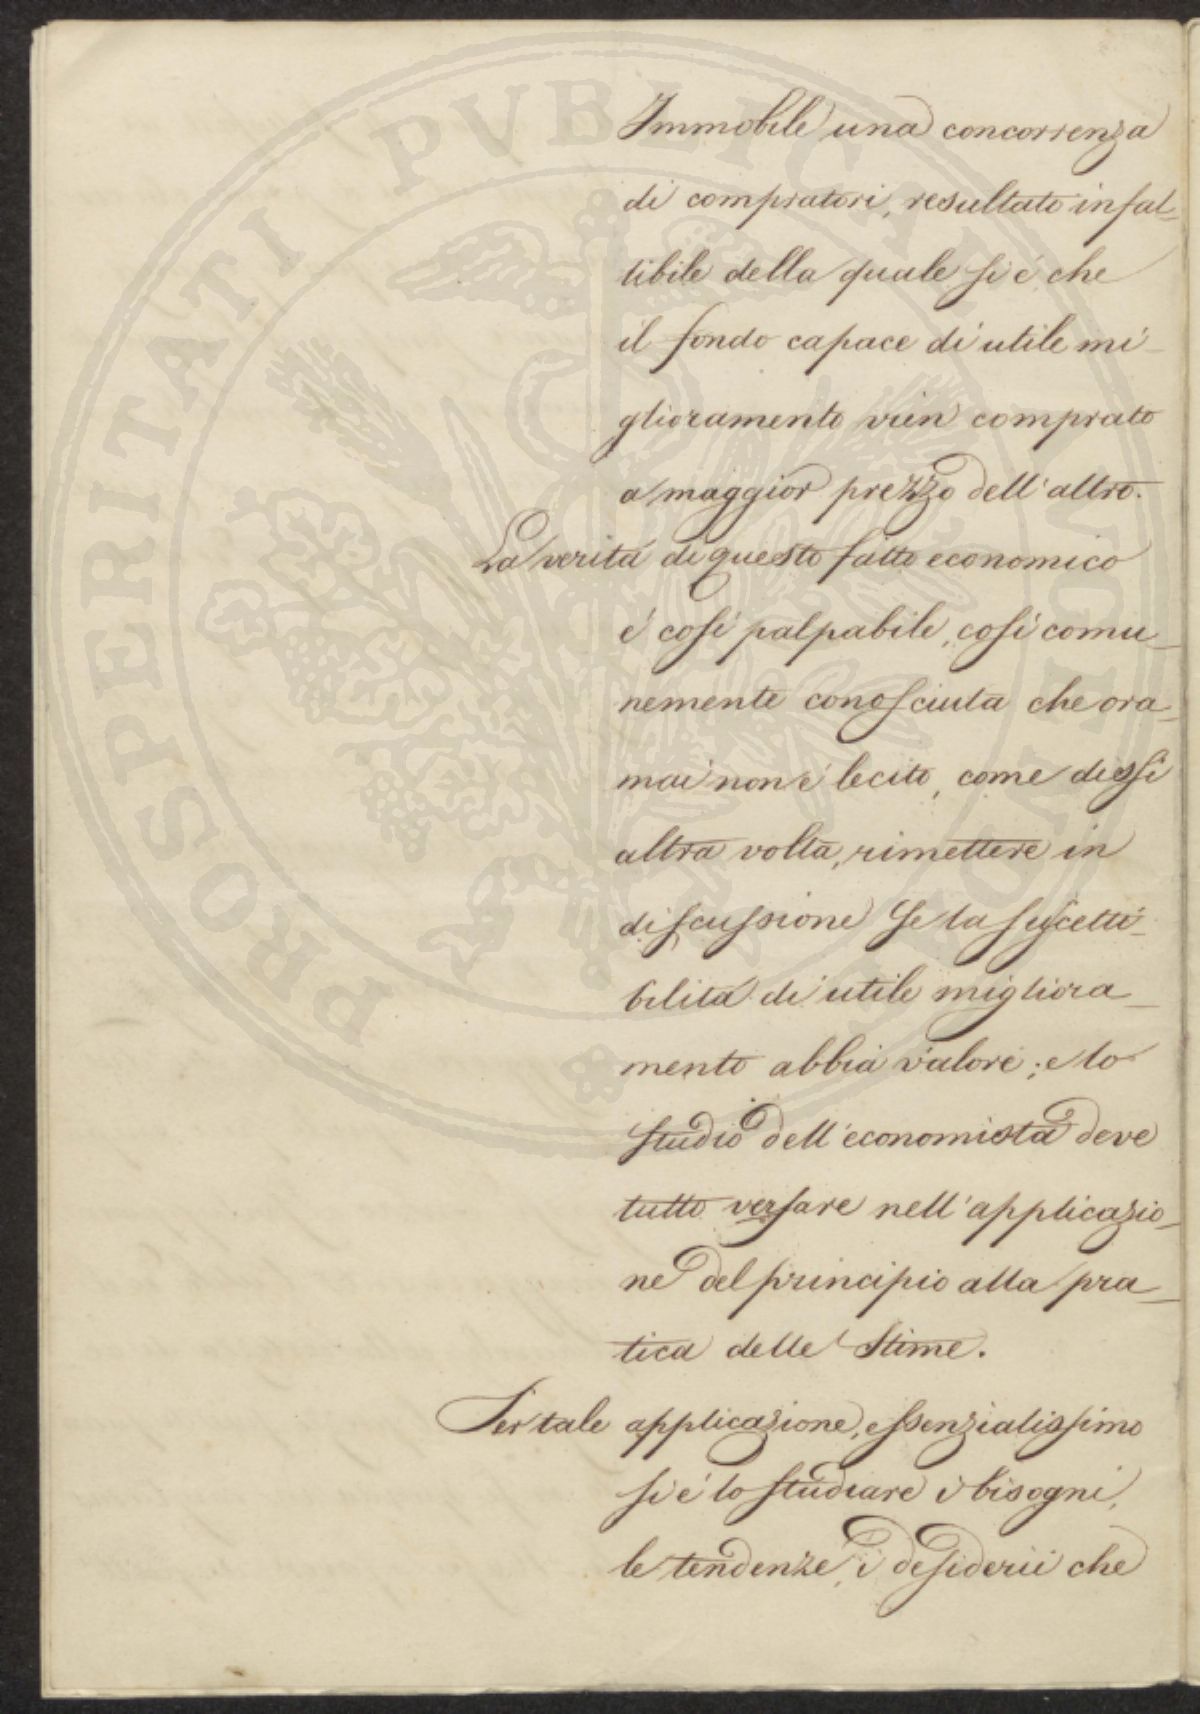 Immobile una concorrenza
di compratori, resultato infal_
libile della quale si é che
il fondo capace di utile mi_
glioramento vien comprato
a maggior prezzo dell'altro.
La veritá di questo fatto economico
é cosi palpabile, cosi comu_
nemente conosciuta che ora_
mai non é lecito, come dissi
altra volta, rimettere in
discussione se la suscetti_
bilitá di utile migliora_
mento abbia valore; e lo
studio dell'economista deve
tutto versare nell'applicazio_
ne del principio alla pra_
tica delle Stime.
Per tale applicazione, essenzialissimo
si é lo studiare i bisogni,
le tendenze, i desiderii che
PROSPERITATI PVBLICAE